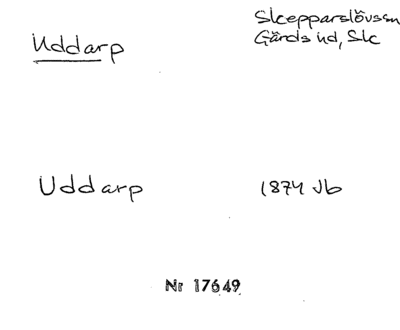 Uddarp
Skepparslövssn
Gärds hd, Sk
Uddarp
1874 Jb
Nr 17649